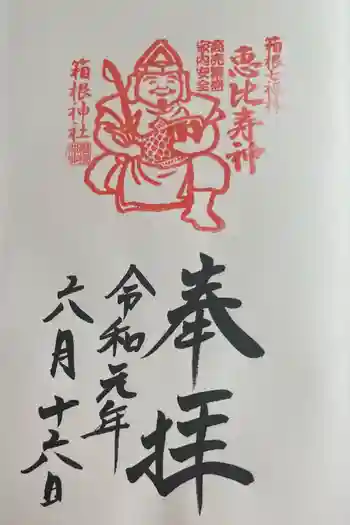 箱根七福神
恵比寿神
商売繁盛
家内安全
箱根神社
奉拝
令和元年
六月十六日